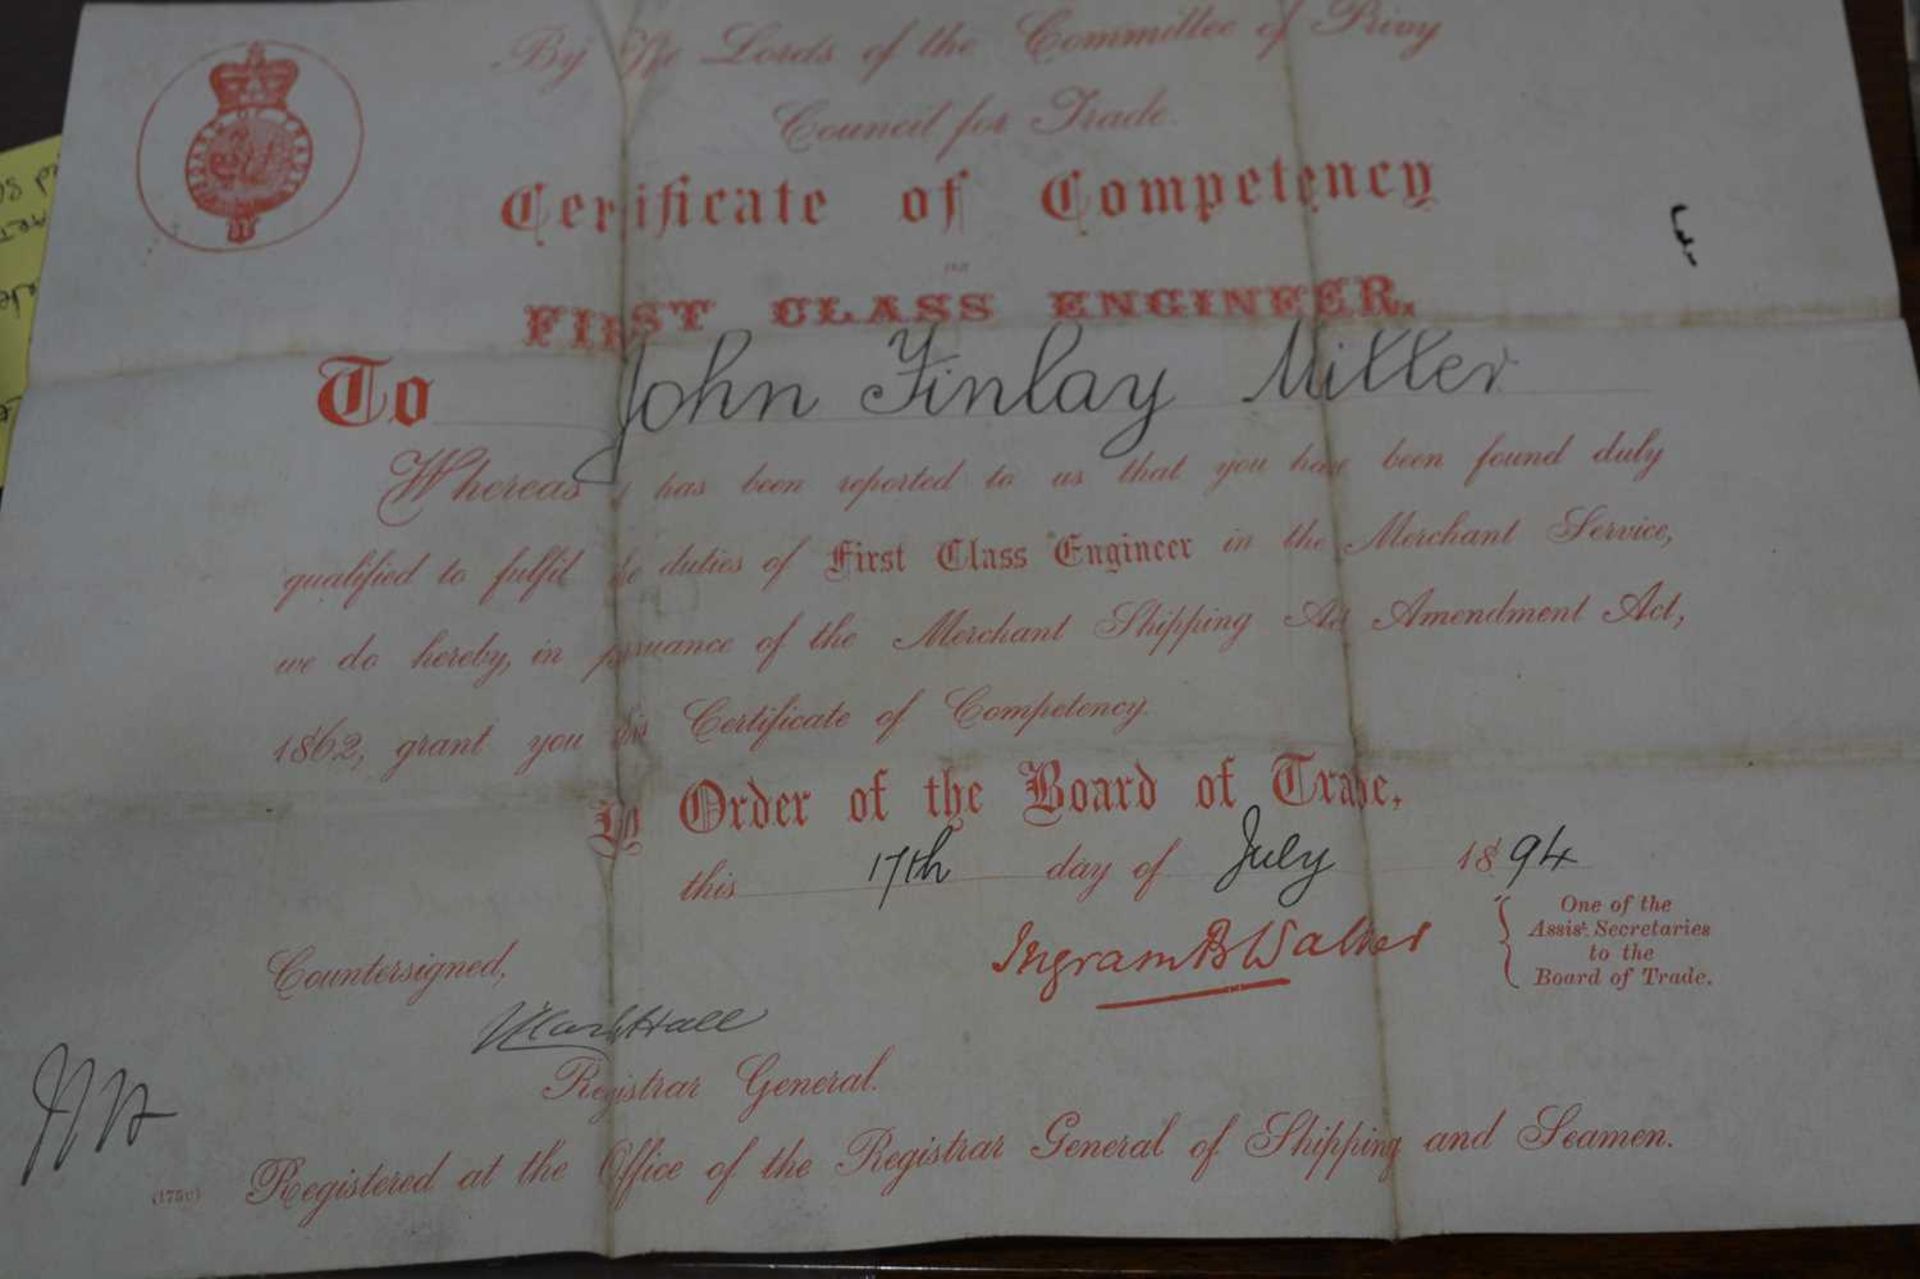 By the Lords of the Committee of Privy
Council for Trade.
Certificate of Competency
FIRST CLASS ENGINEER.
To John Finlay Miller
Whereas it has been reported to us that you have been found duly
qualified to fulfil the duties of First Class Engineer in the Merchant Service,
we do hereby, in pursuance of the Merchant Shipping Act Amendment Act,
1862, grant you this Certificate of Competency.
By Order of the Board of Trade,
this 17th day of July 1894
One of the
Assist. Secretaries
to the
Board of Trade.
Ingram B Walker
Countersigned,
Registrar General.
Registered at the Office of the Registrar General of Shipping and Seamen.